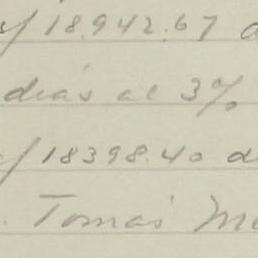 s/ 18.942.67 d
dias al 3%
s/ 18398.40 d
. Tomás Me